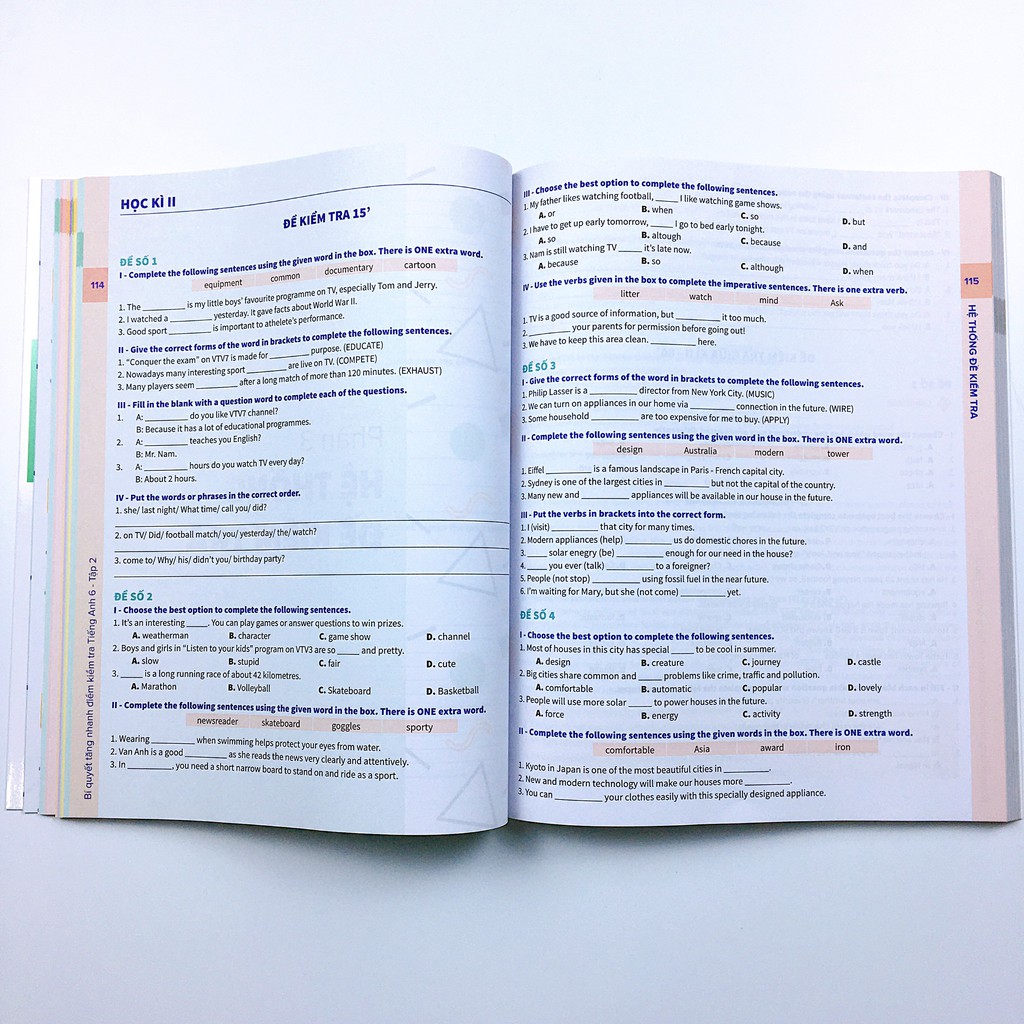 HỌC KÌ II
ĐỀ KIỂM TRA 15'
ĐỀ SỐ 1
I - Complete the following sentences using the given word in the box. There is ONE extra word.
equipment common documentary cartoon
1. The ________ is my little boys' favourite programme on TV, especially Tom and Jerry.
2. I watched a ________ yesterday. It gave facts about World War II.
3. Good sport ________ is important to athelete's performance.
II - Give the correct forms of the word in brackets to complete the following sentences.
1. "Conquer the exam" on VTV7 is made for ________ purpose. (EDUCATE)
2. Nowadays many interesting sport ________ are live on TV. (COMPETE)
3. Many players seem ________ after a long match of more than 120 minutes. (EXHAUST)
III - Fill in the blank with a question word to complete each of the questions.
1. A: ________ do you like VTV7 channel?
B: Because it has a lot of educational programmes.
2. A: ________ teaches you English?
B: Mr. Nam.
3. A: ________ hours do you watch TV every day?
B: About 2 hours.
IV - Put the words or phrases in the correct order.
1. she/ last night/ What time/ call you/ did?
2. on TV/ Did/ football match/ you/ yesterday/ the/ watch?
3. come to/ Why/ his/ didn't you/ birthday party?
ĐỀ SỐ 2
I - Choose the best option to complete the following sentences.
1. It's an interesting ____. You can play games or answer questions to win prizes.
A. weatherman B. character C. game show D. channel
2. Boys and girls in "Listen to your kids" program on VTV3 are so ____ and pretty.
A. slow B. stupid C. fair D. cute
3. ____ is a long running race of about 42 kilometres.
A. Marathon B. Volleyball C. Skateboard D. Basketball
II - Complete the following sentences using the given word in the box. There is ONE extra word.
newsreader skateboard goggles sporty
1. Wearing ________ when swimming helps protect your eyes from water.
2. Van Anh is a good ________ as she reads the news very clearly and attentively.
3. In ________, you need a short narrow board to stand on and ride as a sport.
114
Bí quyết tăng nhanh điểm kiểm tra Tiếng Anh 6 - Tập 2
III - Choose the best option to complete the following sentences.
1. My father likes watching football, ____ I like watching game shows.
A. or B. when C. so D. but
2. I have to get up early tomorrow, ____ I go to bed early tonight.
A. so B. altough C. because D. and
3. Nam is still watching TV ____ it's late now.
A. because B. so C. although D. when
IV - Use the verbs given in the box to complete the imperative sentences. There is one extra verb.
litter watch mind Ask
1. TV is a good source of information, but ________ it too much.
2. ________ your parents for permission before going out!
3. We have to keep this area clean. ________ here.
ĐỀ SỐ 3
I - Give the correct forms of the word in brackets to complete the following sentences.
1. Philip Lasser is a ________ director from New York City. (MUSIC)
2. We can turn on appliances in our home via ________ connection in the future. (WIRE)
3. Some household ________ are too expensive for me to buy. (APPLY)
II - Complete the following sentences using the given word in the box. There is ONE extra word.
design Australia modern tower
1. Eiffel ________ is a famous landscape in Paris - French capital city.
2. Sydney is one of the largest cities in ________ but not the capital of the country.
3. Many new and ________ appliances will be available in our house in the future.
III - Put the verbs in brackets into the correct form.
1. I (visit) ________ that city for many times.
2. Modern appliances (help) ________ us do domestic chores in the future.
3. ____ solar enegry (be) ________ enough for our need in the house?
4. ____ you ever (talk) ________ to a foreigner?
5. People (not stop) ________ using fossil fuel in the near future.
6. I'm waiting for Mary, but she (not come) ________ yet.
ĐỀ SỐ 4
I - Choose the best option to complete the following sentences.
1. Most of houses in this city has special ____ to be cool in summer.
A. design B. creature C. journey D. castle
2. Big cities share common and ____ problems like crime, traffic and pollution.
A. comfortable B. automatic C. popular D. lovely
3. People will use more solar ____ to power houses in the future.
A. force B. energy C. activity D. strength
II - Complete the following sentences using the given words in the box. There is ONE extra word.
comfortable Asia award iron
1. Kyoto in Japan is one of the most beautiful cities in ________.
2. New and modern technology will make our houses more ________.
3. You can ________ your clothes easily with this specially designed appliance.
115
HỆ THỐNG ĐỀ KIỂM TRA